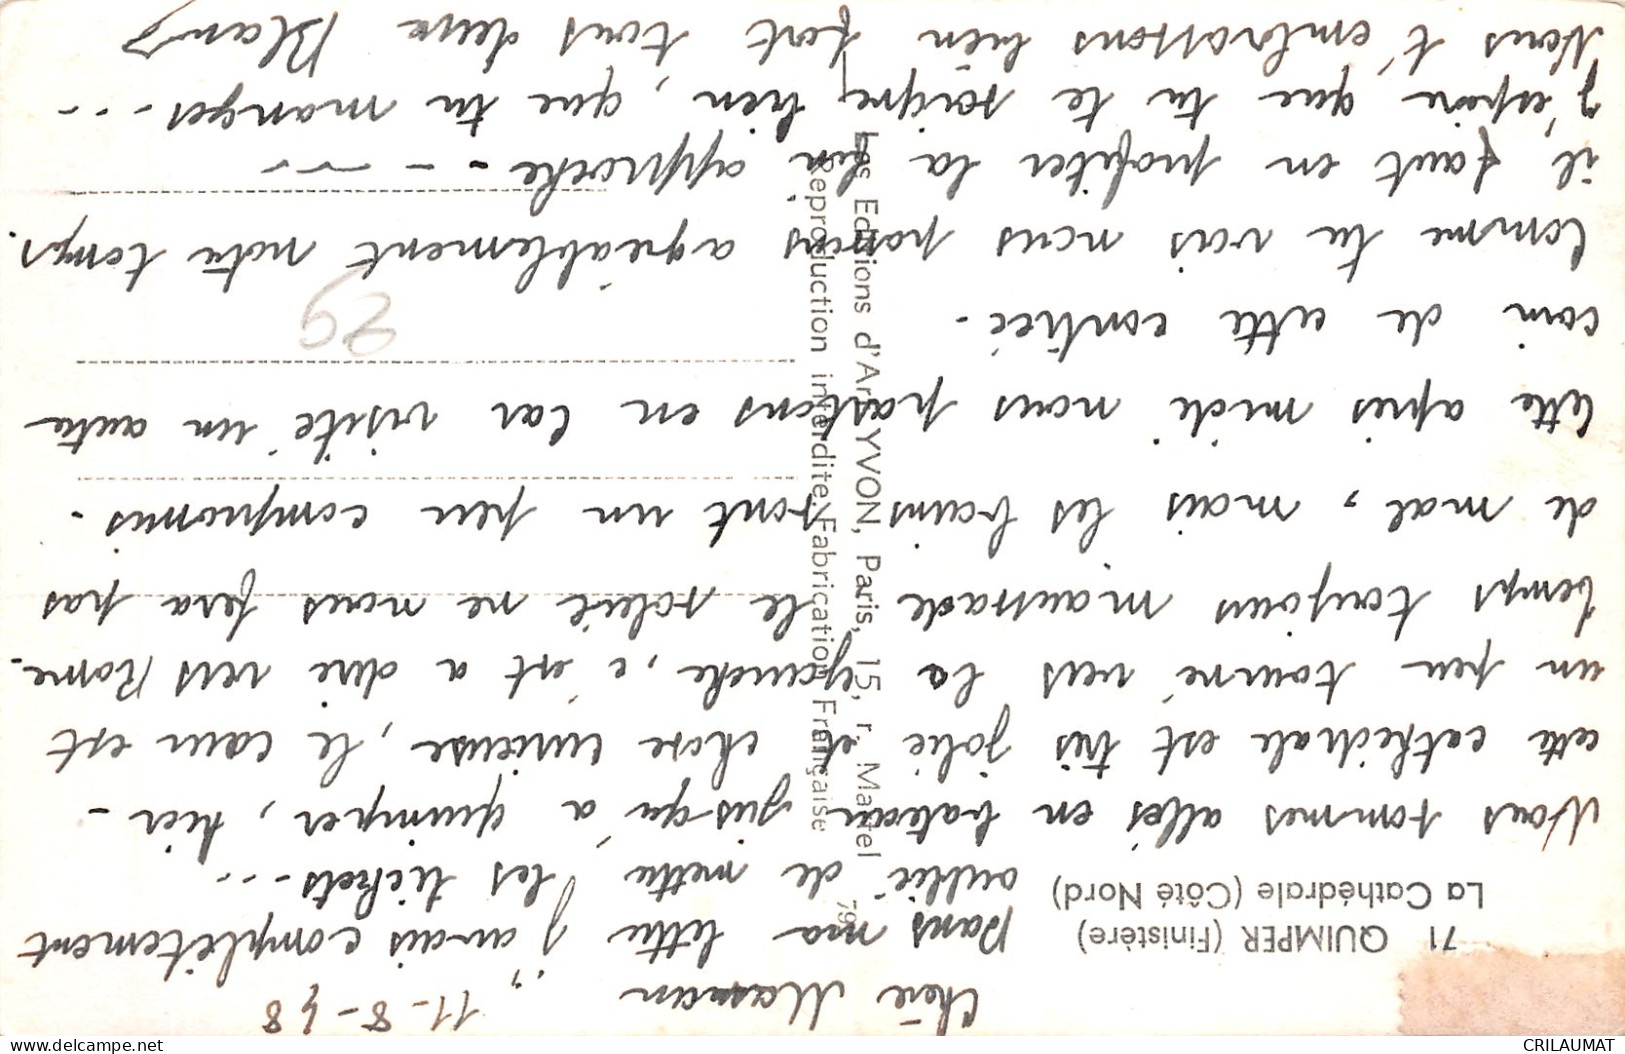 71 QUIMPER (Finistère)
La Cathédrale (Côté Nord)
11-8-48
Chère Maman
Dans ma lettre j'avais complètement
oublié de mettre les tickets...
Nous sommes allés en bateau jusqu'à Quimper, hier -
cette cathédrale est très jolie et chose curieuse, le cœur est
un peu tourné vers la gauche, c'est a dire vers Rome.
temps toujours maussade le soleil ne nous fera pas
de mal, mais les bains sont un peu compromis.
Cette après midi nous partons en Car visité un autre
coin de cette contrée.
Comme tu vois nous passons agréablement notre temps.
il faut en profiter la fin approche - - -
J'espère que tu te soigne bien, que tu manges...
Nous t'embrassons bien fort tous deux
29
Les Editions d'Art YVON, Paris, 15, r. Martel
Reproduction interdite. Fabrication Française
CRILAUMAT